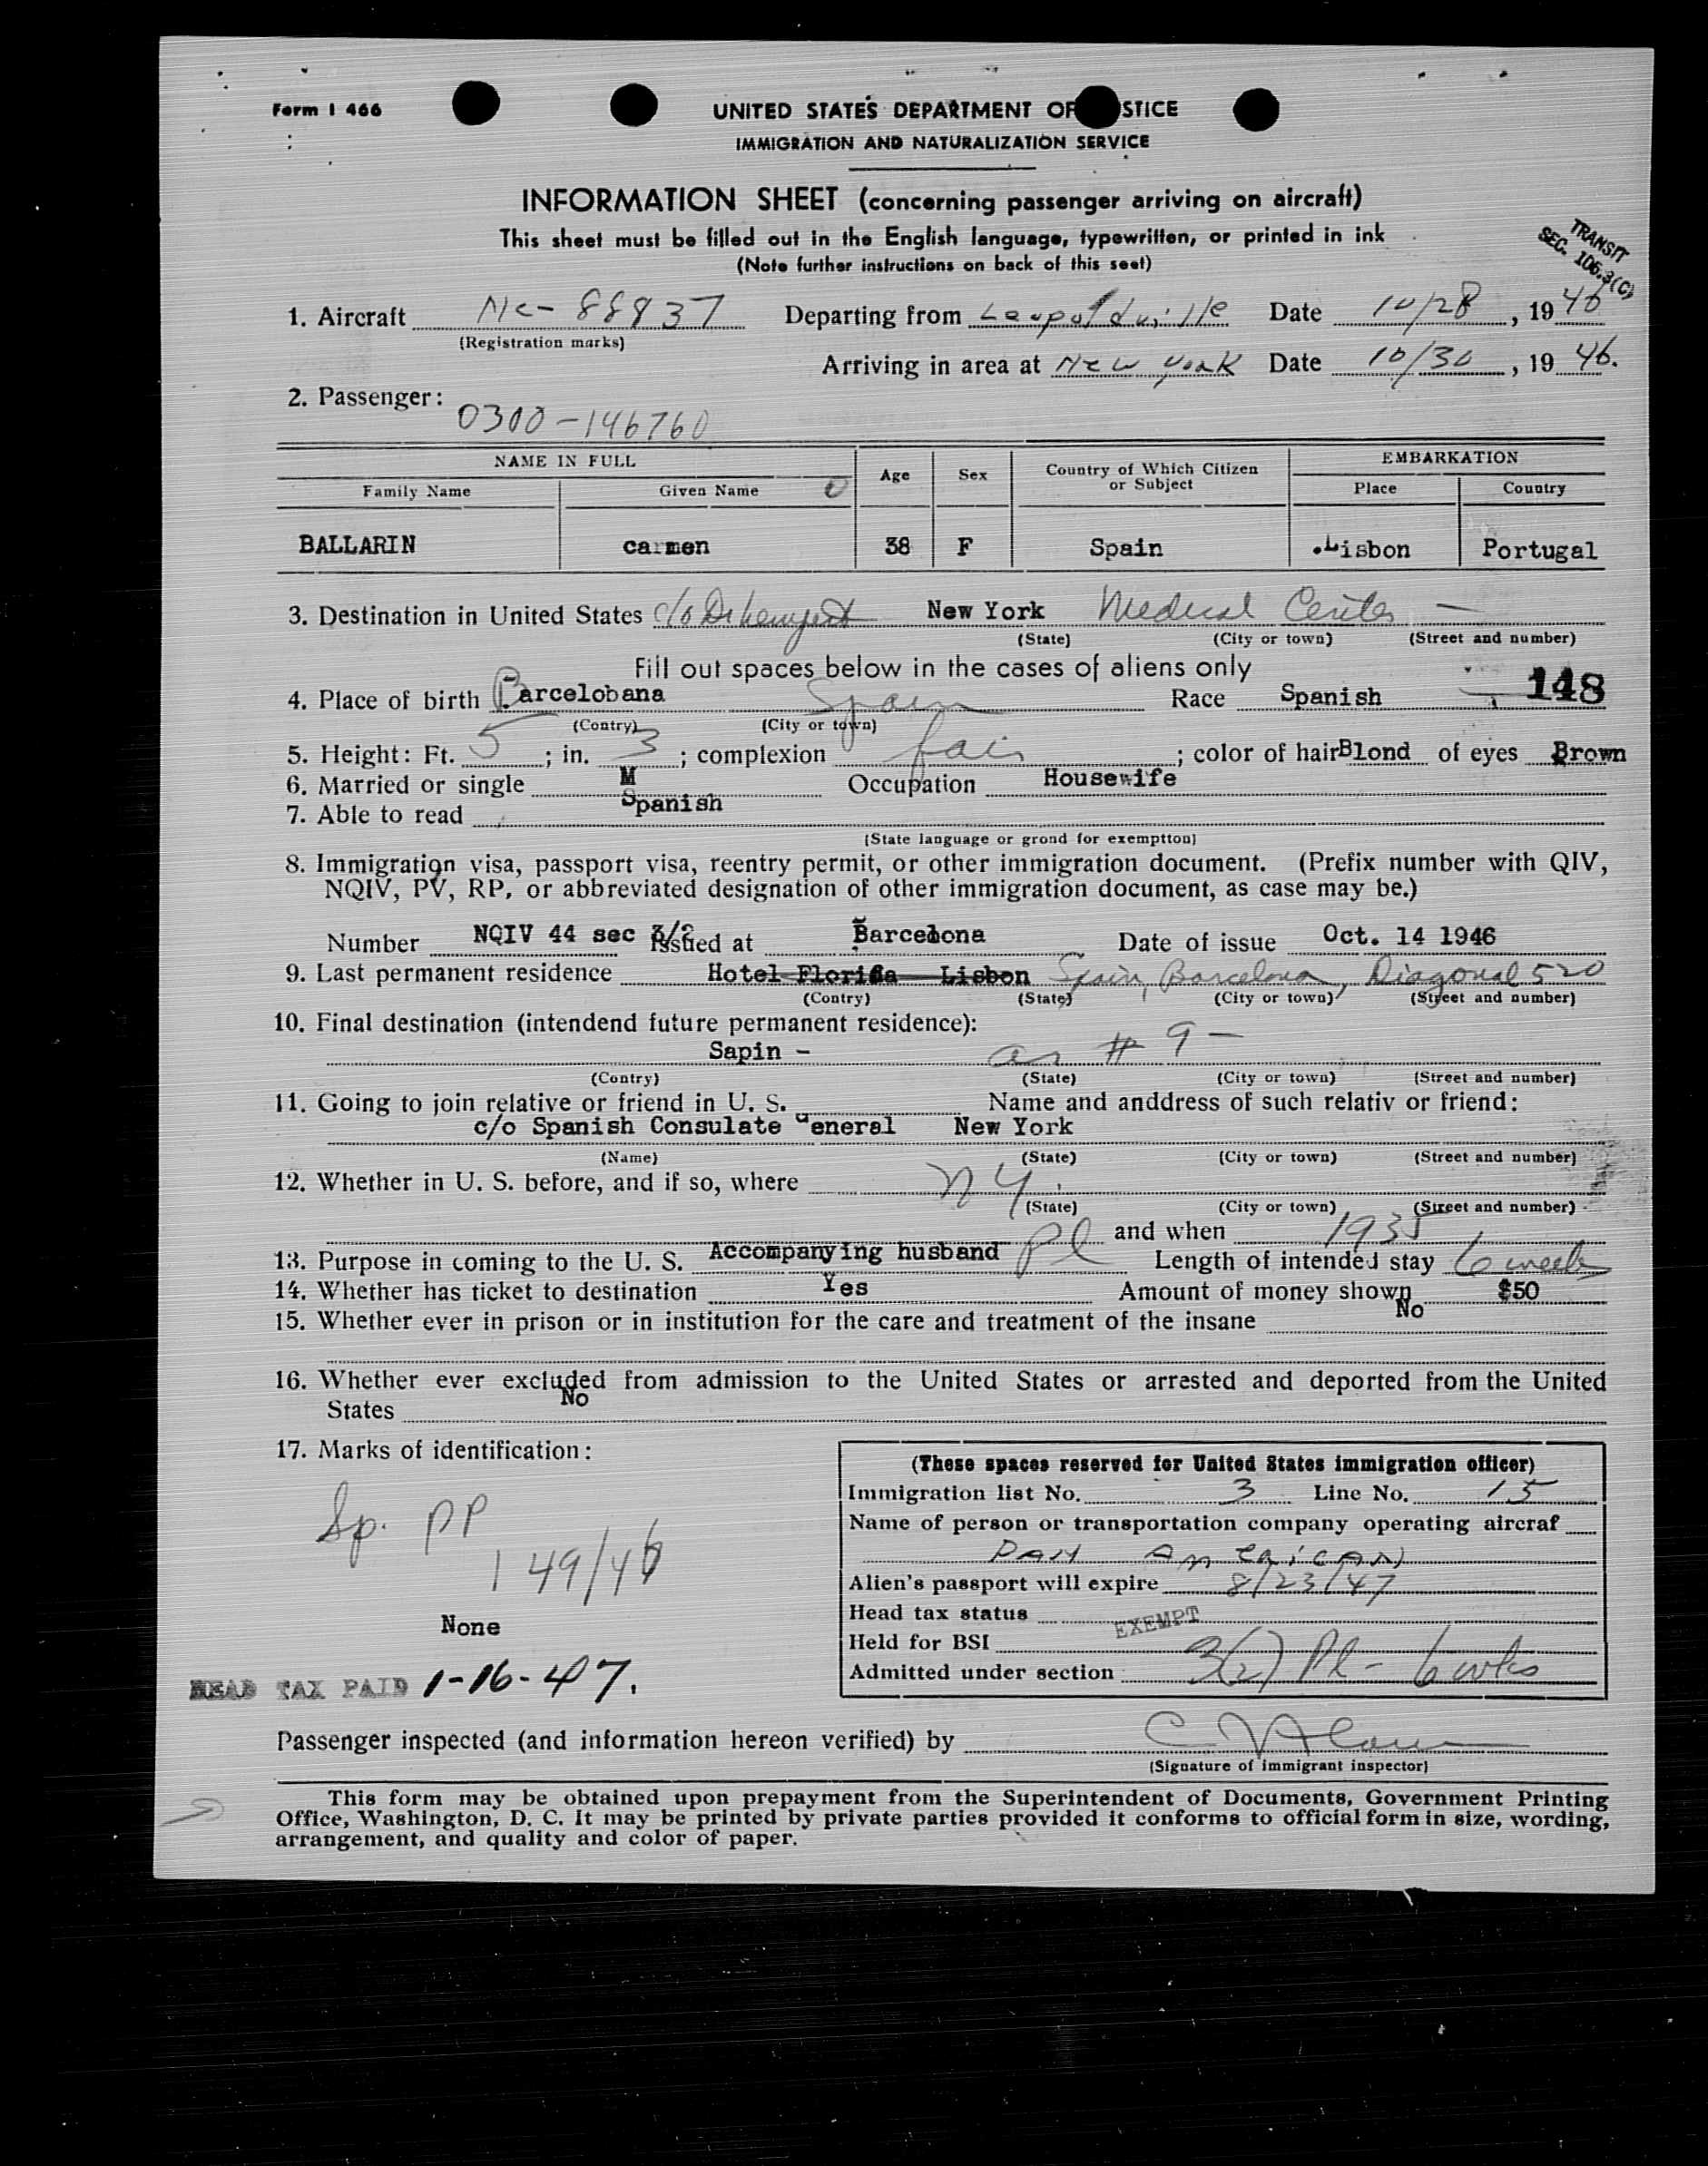 Form I 466
UNITED STATES DEPARTMENT OF STICE
IMMIGRATION AND NATURALIZATION SERVICE
INFORMATION SHEET (concerning passenger arriving on aircraft)
This sheet must be filled out in the English language, typewritten, or printed in ink
(Note further instructions on back of this seet)
TRANSIT
SEC. 106.3(C)
1. Aircraft NC- 88837 Departing from Leopoldville Date 10/28, 1946
(Registration marks)
Arriving in area at New York Date 10/30, 1946.
2. Passenger: 0300-146760
NAME IN FULL Age Sex Country of Which Citizen or Subject EMBARKATION
Family Name Given Name Place Country
BALLARIN carmen 38 F Spain .Lisbon Portugal
3. Destination in United States c/o Dr New York Medical Center
(State) (City or town) (Street and number)
Fill out spaces below in the cases of aliens only
4. Place of birth Barcelobana Spain Race Spanish 148
(Contry) (City or town)
5. Height: Ft. 5; in. 3; complexion fair; color of hair Blond of eyes Brown
6. Married or single M Occupation Housewife
7. Able to read Spanish
(State language or grond for exemptton)
8. Immigration visa, passport visa, reentry permit, or other immigration document. (Prefix number with QIV,
NQIV, PV, RP, or abbreviated designation of other immigration document, as case may be.)
Number NQIV 44 sec 3/2 Issued at Barcelona Date of issue Oct. 14 1946
9. Last permanent residence Hotel Florida Lisbon Spain, Barcelona, Diagonal 520
(Contry) (State) (City or town) (Street and number)
10. Final destination (intendend future permanent residence):
Sapin - as # 9 -
(Contry) (State) (City or town) (Street and number)
11. Going to join relative or friend in U. S. Name and anddress of such relativ or friend:
c/o Spanish Consulate General New York
(Name) (State) (City or town) (Street and number)
12. Whether in U. S. before, and if so, where NY
(State) (City or town) (Street and number)
and when 1935
13. Purpose in coming to the U. S. Accompanying husband Pl Length of intended stay 6 weeks
14. Whether has ticket to destination Yes Amount of money shown $50
15. Whether ever in prison or in institution for the care and treatment of the insane No
16. Whether ever excluded from admission to the United States or arrested and deported from the United
States No
17. Marks of identification:
Sp. PP
149/46
None
HEAD TAX PAID 1-16-47.
(These spaces reserved for United States immigration officer)
Immigration list No. 3 Line No. 15
Name of person or transportation company operating aircraf
PAN AMERICAN
Alien's passport will expire 8/23/47
Head tax status EXEMPT
Held for BSI
Admitted under section 3(2) Pl - 6 wks
Passenger inspected (and information hereon verified) by
(Signature of immigrant inspector)
This form may be obtained upon prepayment from the Superintendent of Documents, Government Printing
Office, Washington, D. C. It may be printed by private parties provided it conforms to official form in size, wording,
arrangement, and quality and color of paper.